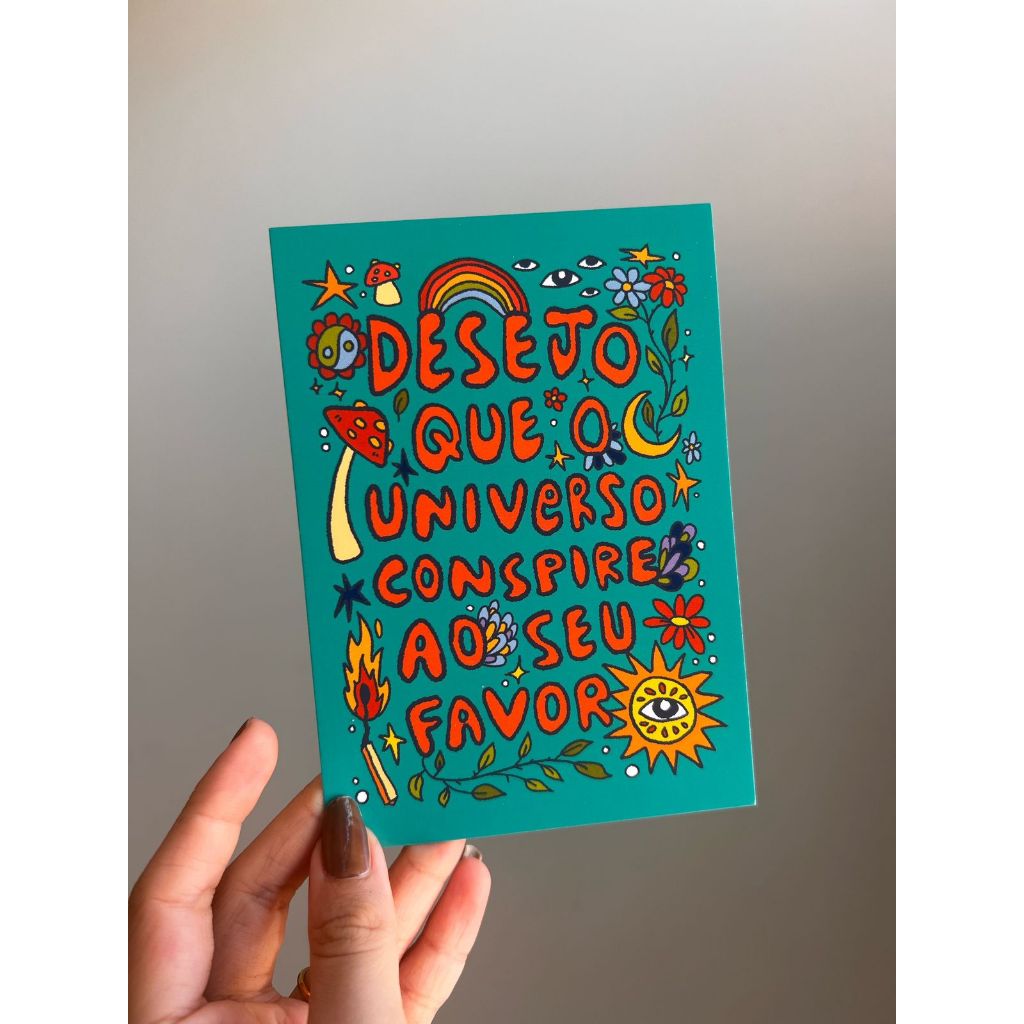 DESEJO
QUE O
UNIVERSO
CONSPIRE
AO SEU
FAVOR